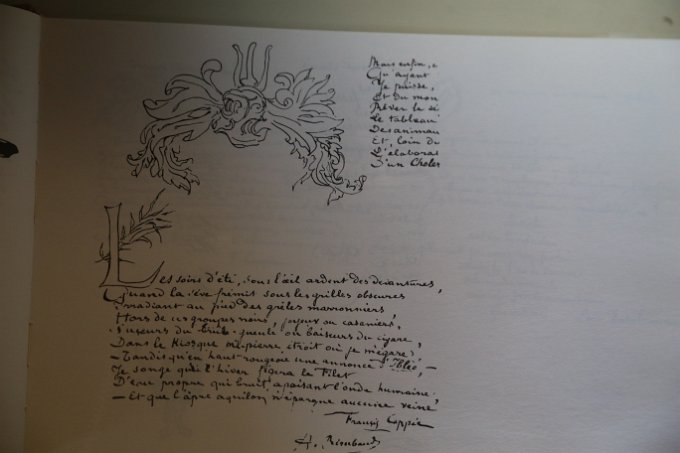 Mais enfin, c
Qu'ayant
Je puisse,
Et du mon
Rêver le sé
Le tableau
Des animau
Et, loin du
L'élaborat
D'un Choler
Les soirs d'été, sous l'œil ardent des devantures,
Quand la sève frémit sous les grilles obscures
Irradiant au pied des grêles marronniers,
Hors de ces groupes noirs, joyeux ou casaniers,
Suceurs du brûle-gueule ou baiseurs du cigare,
Dans le kiosque mi-pierre étroit où je m'égare,
— Tandis qu'en haut rougeoie une annonce d'Ibled, —
Je songe que l'hiver figera le Filet
D'eau propre qui bruit, apaisant l'onde humaine,
— Et que l'âpre aquilon n'épargne aucune veine
Francis Coppée
A. Rimbaud